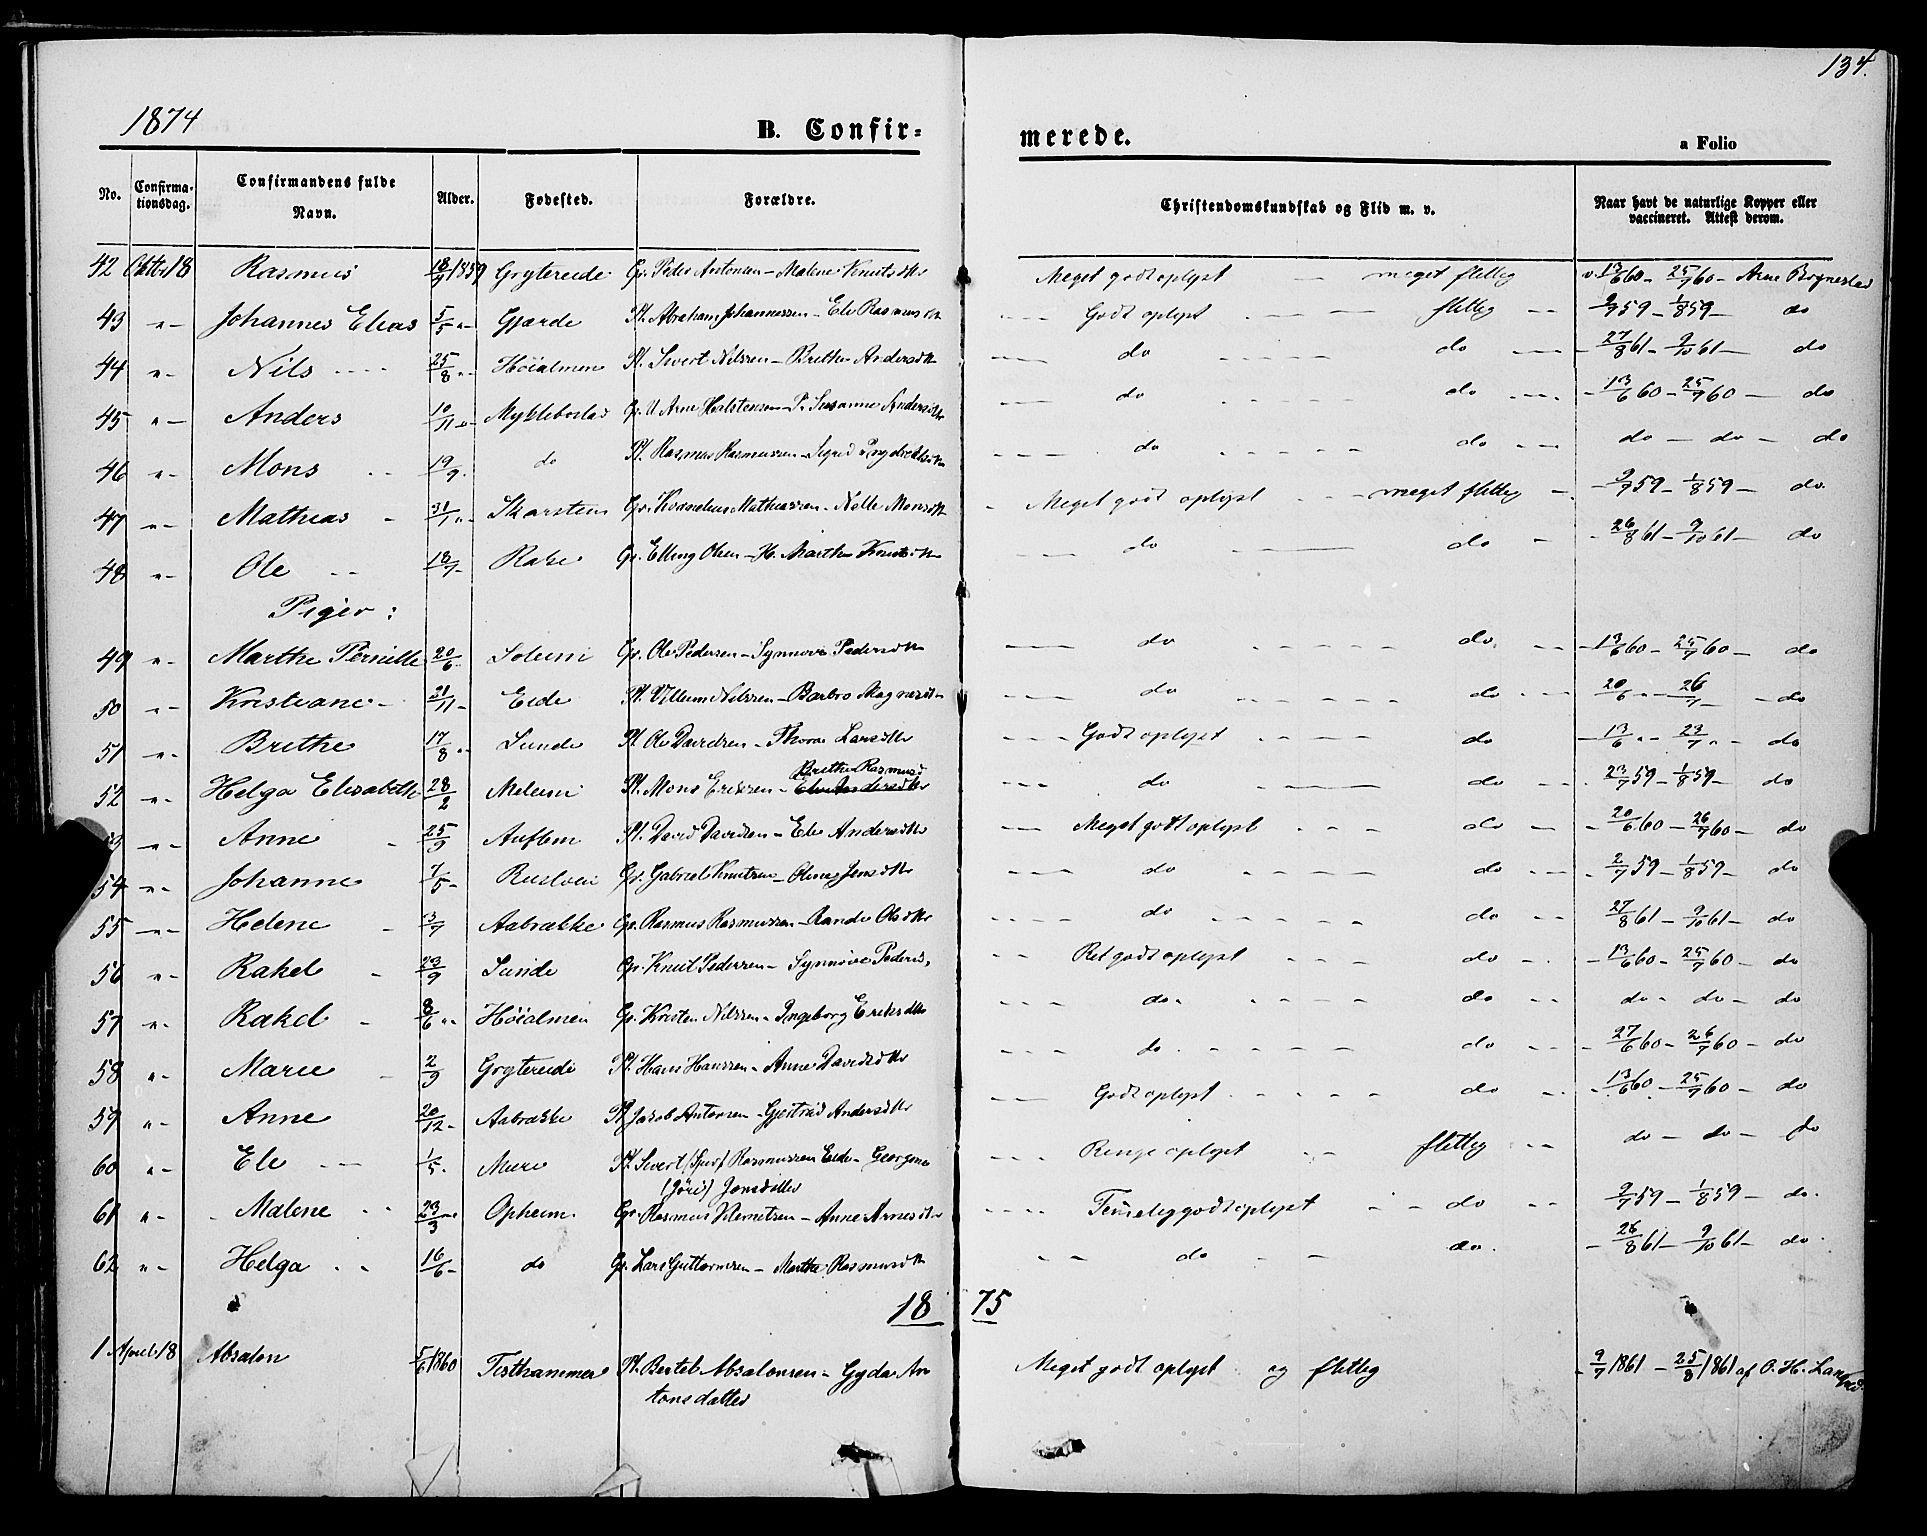 134.
1874
B. Confir- merede.
a Folio
No. Confirmationsdag. Confirmandens fulde Navn. Alder. Fødested. Forældre. Christendomskundskab og Flid m. v. Naar havt de naturlige Kopper eller vaccineret. Attest derom.
42 Octbr 18 Rasmus 18/9 1859 Grytereide Gr. Peder Antonsen - Malene Knutsdtr Meget godt oplyst — meget flittig v. 13/6 60 - 25/7 60 - Arne Bøgnestad
43 "- Johannes Elias 5/5 "- Gjærde Pl. Abraham Johannessen - Eli Rasmusdtr Godt oplyst - flittig - 9/7 59 - 1/8 59 - do
44 "- Nils 25/8 "- Höialmen Pl. Sivert Nilssen - Brithe Andersdtr do do - 27/8 61 - 9/10 61 - do
45 "- Anders 10/11 "- Myklebostad Gr. U. Arne Halstensen - P. Susanne Andersdtr do do - 13/6 60 - 25/7 60 - do
46 "- Mons 19/9 - do Pl. Rasmus Rasmussen - Sigrid do do do - do - do
47 "- Mathias 31/1 "- Skarsten Gr. Kornelius Mathiassen - Nille Monsdtr Meget godt oplyst - meget flittig - 9/7 59 - 1/8 59 - do.
48 "- Ole 18/7 - Rake Gr. Elling Olsen - H. Marthe Knutsdtr do do - 26/8 61 - 9/10 61 - do
Piger:
49 "- Marthe Pernille 20/6 - Solemi Gr. Ole Pedersen - Synnøve Pedersdtr do do. - 13/6 60 - 25/7 60 - do
50 "- Kristiane - 21/11 - Eide Pl. Villum Nilssen - Barbro Magnesdtr do do - 20/6 "- 26/7 - do
51 "- Brithe 17/8 "- Sunde Pl. Ole Davidsen - Thora Larsdtr Godt oplyst do - 13/6 "- 23/7 "- do
Brithe Rasmusd
52 "- Helga Elisabeth 28/2 Melemi Pl. Mons Erikssen - Andersdtr do do - 23/7 59 - 1/8 59 - do
"- Anne 25/9 Auflem Pl. David Davidsen - Eli Andersdtr Meget godt oplyst do - 20/6 60 - 26/7 60 - do
54 "- Johanne 7/5 - Rusteen Gr. Gabriel Knutsen - Oline Jensdtr do do - 2/7 59 - 1/8 59 - do
55 "- Helene 3/7 Aabrække Gr. Rasmus Rasmussen - Rande Olsdtr do do 27/8 61 - 9/10 61 - do
56 "- Rakel 23/9 Sunde Gr. Knut Pedersen - Synnøve Pedersd. Ret godt oplyst do - 13/6 60 - 25/7 60 - do
57 "- Rakel 8/6 "- Höialmen Gr. Kristen Nilssen - Ingeborg Eriksdtr do. do do - do - do
58 "- Marie 2/9 Gryteride Pl. Hans Hanssen - Anne Davidsdtr do. do - 27/6 60 - 26/7 60 - do
59 "- Anne 20/12 - Aabrække Pl. Jakob Antonsen - Gjertrud Andersdtr Godt oplyst do - 13/6 60 - 25/7 60 - do
60 "- Eli 1/5 - Muri Pl. Sivert (Sjur) Rasmussen Eide - Georgine Ringe oplyst flittig do - do - do
(Jöri) Jonsdatter
61 "- Malene 23/3 "- Opheim Gr. Rasmus Klemetsen - Anne Arnesdtr Temelig godt oplyst do 9/7 59 - 1/8 59 - do.
62 "- Helga 16/6 - do Gr. Lars Guttormsen - Marthe Rasmusdtr do do. - 26/8 61 - 9/10 61 - do.
18 75
1 April 18 Absalon 5/6 1860 Tisthammer Pl. Bertel Absalonsen - Gyda An Meget godt oplyst og flittig - 9/7 1861 - 25/8 1861 af O. H.
tonsdatter